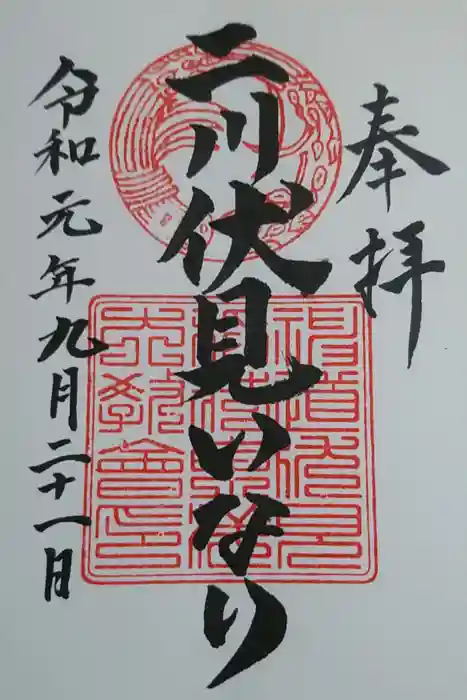 奉拝
二川伏見いなり
令和元年九月二十一日